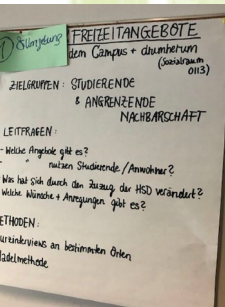 FREIZEITANGEBOTE
dem Campus + drumherum
(Sozialraum
0113)
ZIELGRUPPEN: STUDIERENDE
& ANGRENZENDE
NACHBARSCHAFT
LEITFRAGEN:
- Welche Angebote gibt es?
- " nutzen Studierende / Anwohner?
- Was hat sich durch den Zuzug der HSD verändert?
Welche Wünsche + Anregungen gibt es?
ETHODEN:
urzinterviews an bestimmten Orten
adelmethode